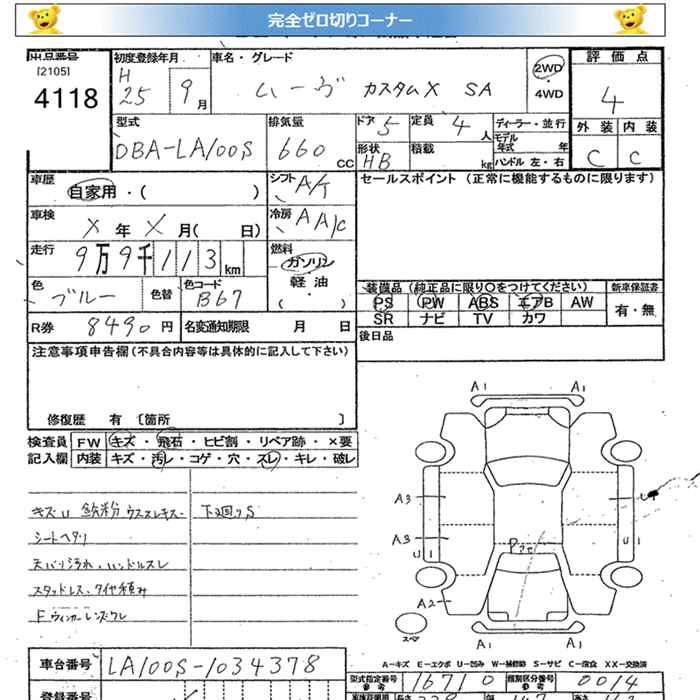 完全ゼロ切りコーナー
出品番号 初度登録年月 車名・グレード 2WD 評価点
[2105] H
4118 25 9月 ムーヴ カスタムX SA ・4WD 4
型式 排気量 ドア 5 定員 4人 ディーラー・並行 外装 内装
DBA-LA100S 660cc 形状 HB 積載 kg モデル年式 年 ハンドル 左・右 C C
車歴 自家用・( ) シフト A/T セールスポイント (正常に機能するものに限ります)
車検 X年 X月( 日) 冷房 AA/C
走行 9万9千113km 燃料 ガソリン
色 ブルー 色替 色コード B67 軽油 ・( ) 装備品 (純正品に限り○をつけてください) 新車保証書
PS PW ABS エアB AW 有・無
R券 8490円 名変通知期限 月 日 SR ナビ TV カワ
注意事項申告欄(不具合内容等は具体的に記入して下さい) 後日品
修復歴 有 〔箇所 〕
検査員 FW キズ・飛石・ヒビ割・リペア跡・×要
記入欄 内装 キズ・汚レ・コゲ・穴・スレ・キレ・破レ
キズU 鉄粉 ウススレキズ 下廻りS
シートヘタリ
天バリ汚れ、ハンドルスレ
スタッドレス、タイヤ積み
F ウィンカーレンズワレ
A1 A1
A3 U1
A3 U1 Pアセ U1
A2
スペア
A1 A1
A-キズ E-エクボ U-凹み W-補修跡 S-サビ C-腐食 XX-交換済
車台番号 LA100S-1034378 型式指定番号 参考 16710 類別区分番号 参考 0014